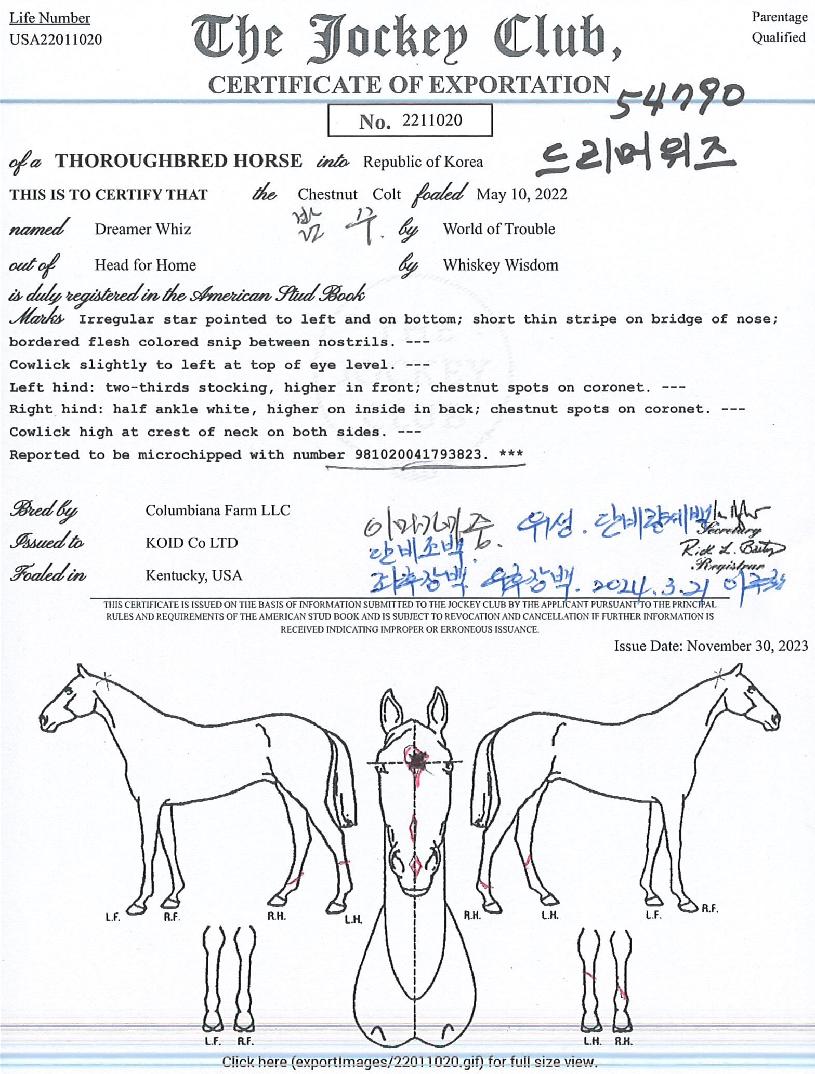 Life Number
USA22011020
The Jockey Club,
Parentage
Qualified
CERTIFICATE OF EXPORTATION
54790
No. 2211020
드리머위즈
of a THOROUGHBRED HORSE into Republic of Korea
THIS IS TO CERTIFY THAT the Chestnut Colt foaled May 10, 2022
named Dreamer Whiz by World of Trouble
out of Head for Home by Whiskey Wisdom
is duly registered in the American Stud Book
Marks Irregular star pointed to left and on bottom; short thin stripe on bridge of nose;
bordered flesh colored snip between nostrils. ---
Cowlick slightly to left at top of eye level. ---
Left hind: two-thirds stocking, higher in front; chestnut spots on coronet. ---
Right hind: half ankle white, higher on inside in back; chestnut spots on coronet. ---
Cowlick high at crest of neck on both sides. ---
Reported to be microchipped with number 981020041793823. ***
Bred by Columbiana Farm LLC
Issued to KOID Co LTD
Foaled in Kentucky, USA
유성. 단비량계백
단비조백.
좌후장백 우후장백. 2024.3.21
Secretary
Registrar
THIS CERTIFICATE IS ISSUED ON THE BASIS OF INFORMATION SUBMITTED TO THE JOCKEY CLUB BY THE APPLICANT PURSUANT TO THE PRINCIPAL
RULES AND REQUIREMENTS OF THE AMERICAN STUD BOOK AND IS SUBJECT TO REVOCATION AND CANCELLATION IF FURTHER INFORMATION IS
RECEIVED INDICATING IMPROPER OR ERRONEOUS ISSUANCE.
Issue Date: November 30, 2023
L.F. R.F. R.H. L.H. R.H. L.H. L.F. R.F.
L.F. R.F. L.H. R.H.
Click here (exportImages/22011020.gif) for full size view.